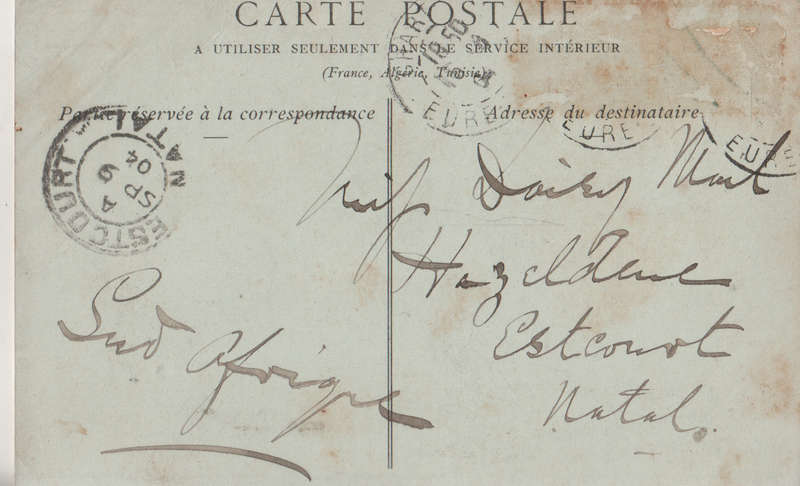 CARTE POSTALE
A UTILISER SEULEMENT DANS LE SERVICE INTÉRIEUR
(France, Algérie, Tunisie)
Partie réservée à la correspondance
Adresse du destinataire
EURE
EURE
EURE
ESTCOURT NATAL
A
SP 9
04
Miss Daisy
Hazeldene
Estcourt
Natal.
Sud Afrique